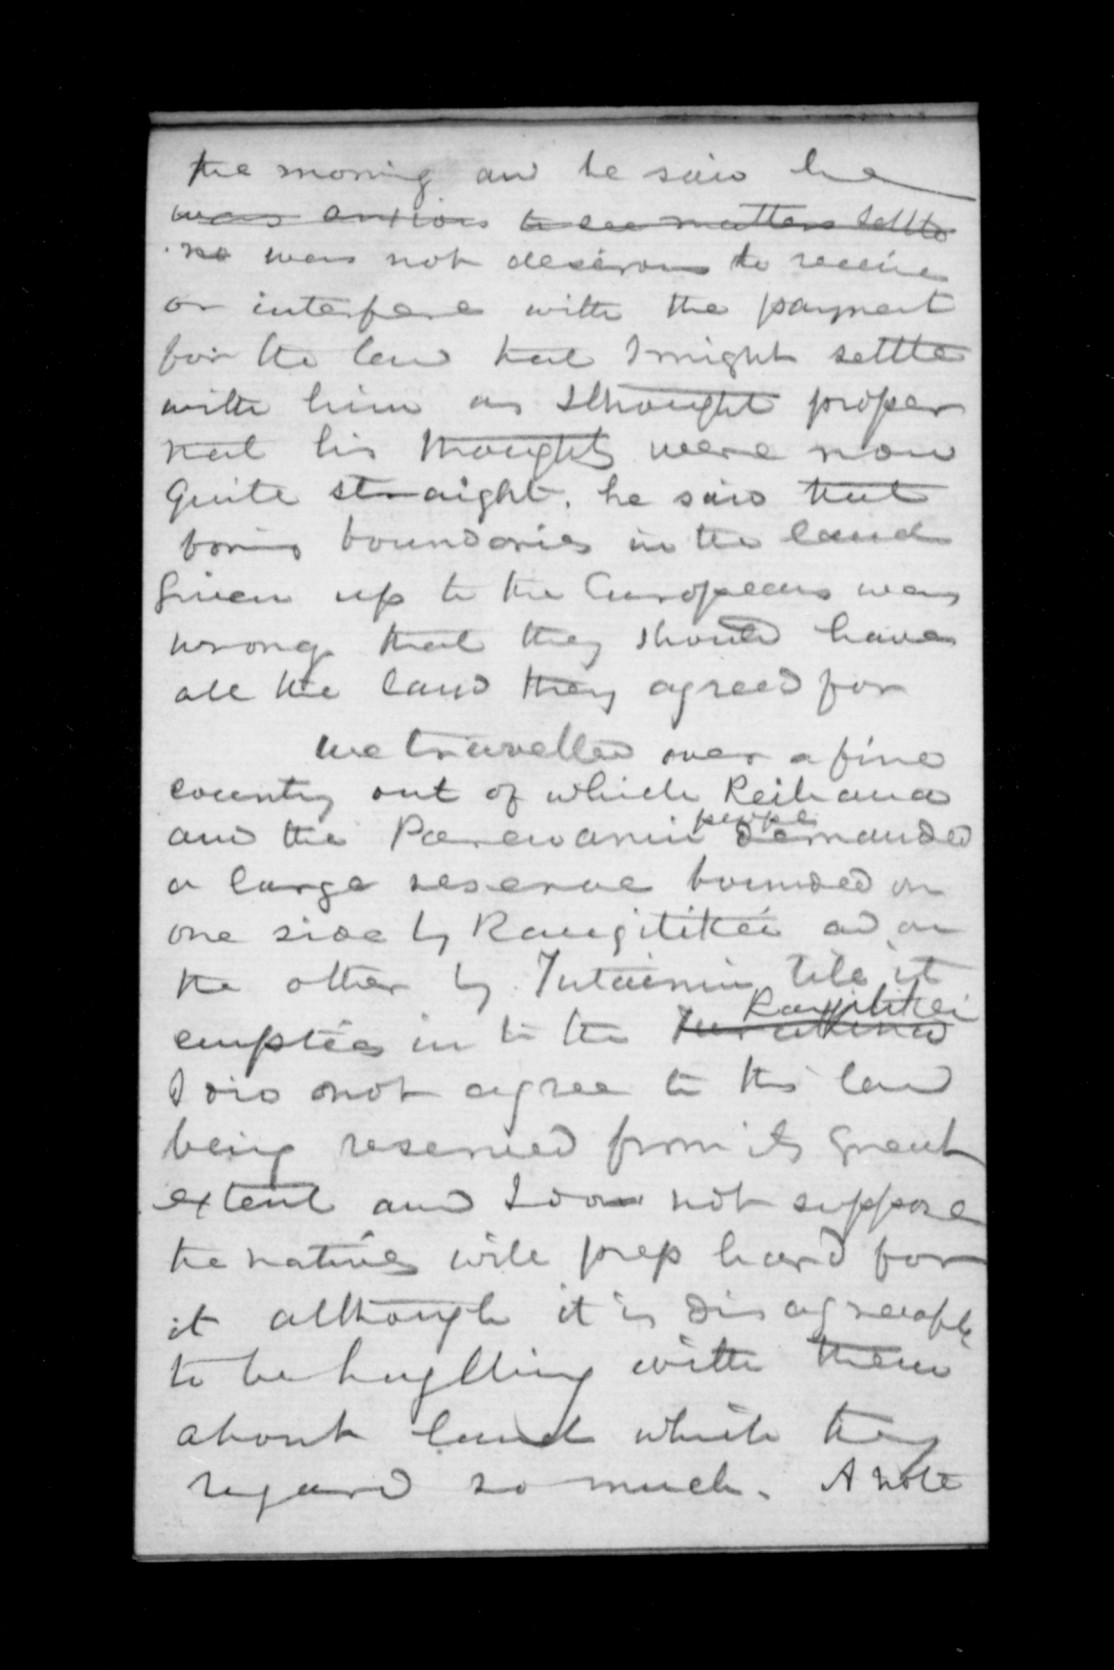 the morning and he said he
was anxious to see matters settld
no was not desirous to receive
or interfere with the payment
for the land that I might settle
with him as I thought proper
that his thoughts were now
quite straight. he said that
boring boundaries in the land
given up to the Europeans was
wrong that they should have
all the land they agreed for
We travelled over a fine
country out of which Reihana
and the Parewanui people demanded
a large reserve bounded on
one side by Rangitikei and on
the other by Tutaenui till it
empties in to the Rangitikei
I did not agree to this land
being reserved from its great
extent and I do not suppose
the natives will press hard for
it although it is disagreeable
to be higgling with them
about land which they
regard so much. A note